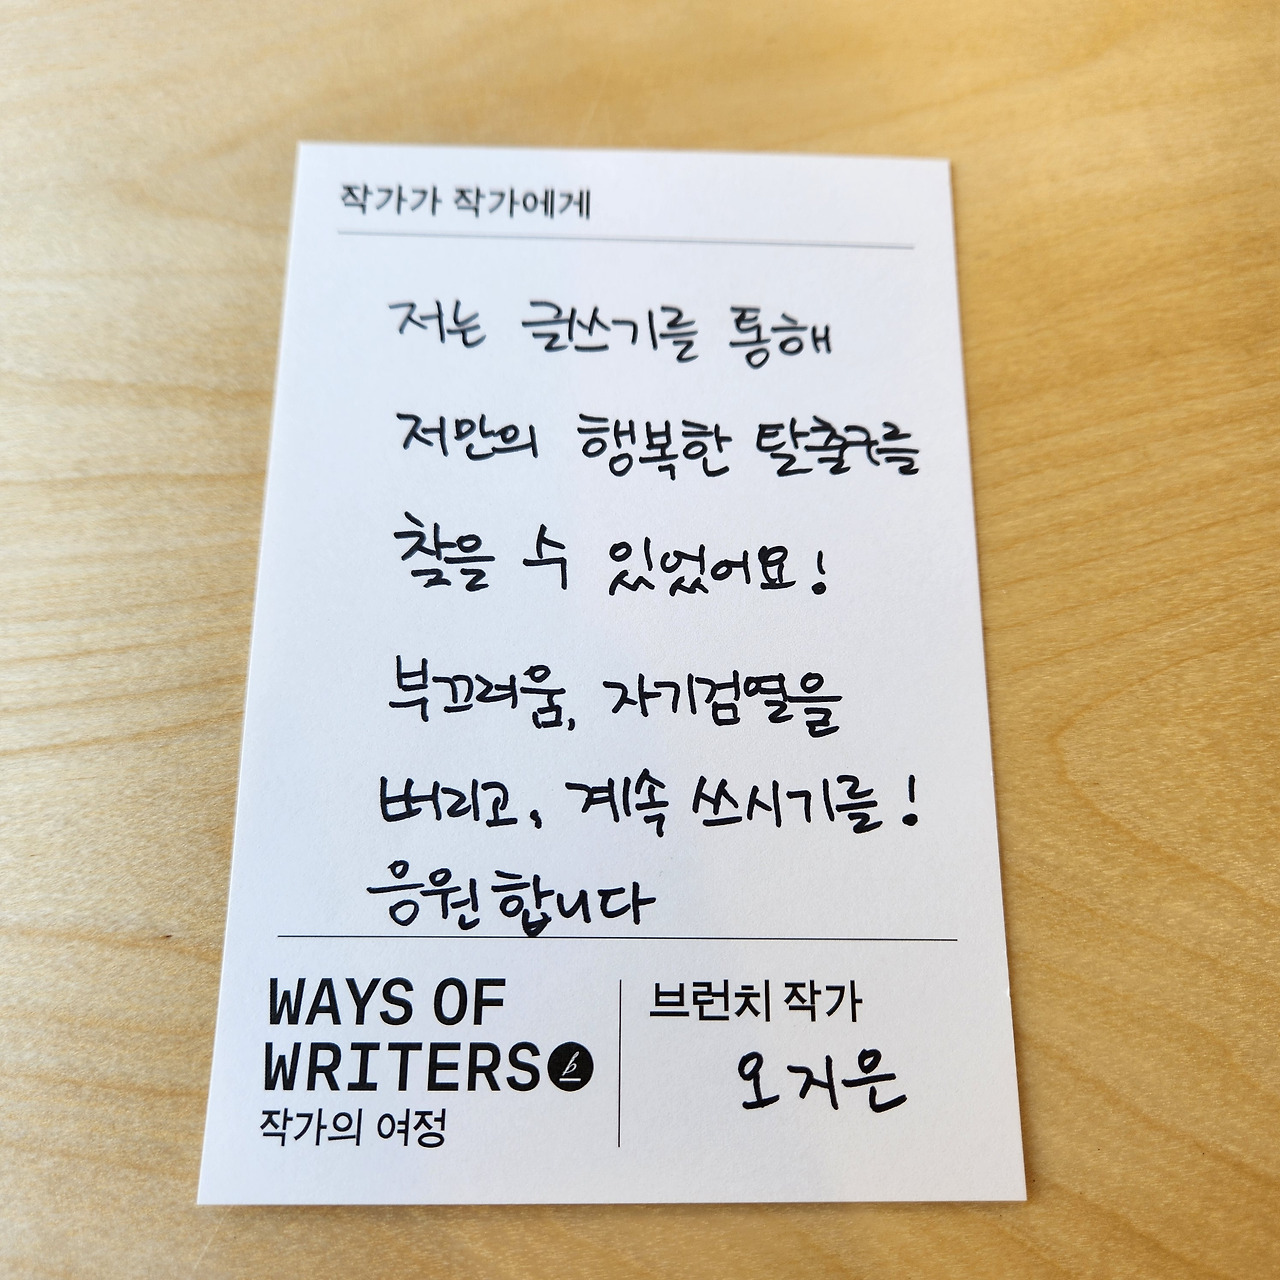 작가가 작가에게
저는 글쓰기를 통해
저만의 행복한 탈출구를
찾을 수 있었어요!
부끄러움, 자기검열을
버리고, 계속 쓰시기를!
응원합니다
WAYS OF
WRITERS b
작가의 여정
브런치 작가
오지은